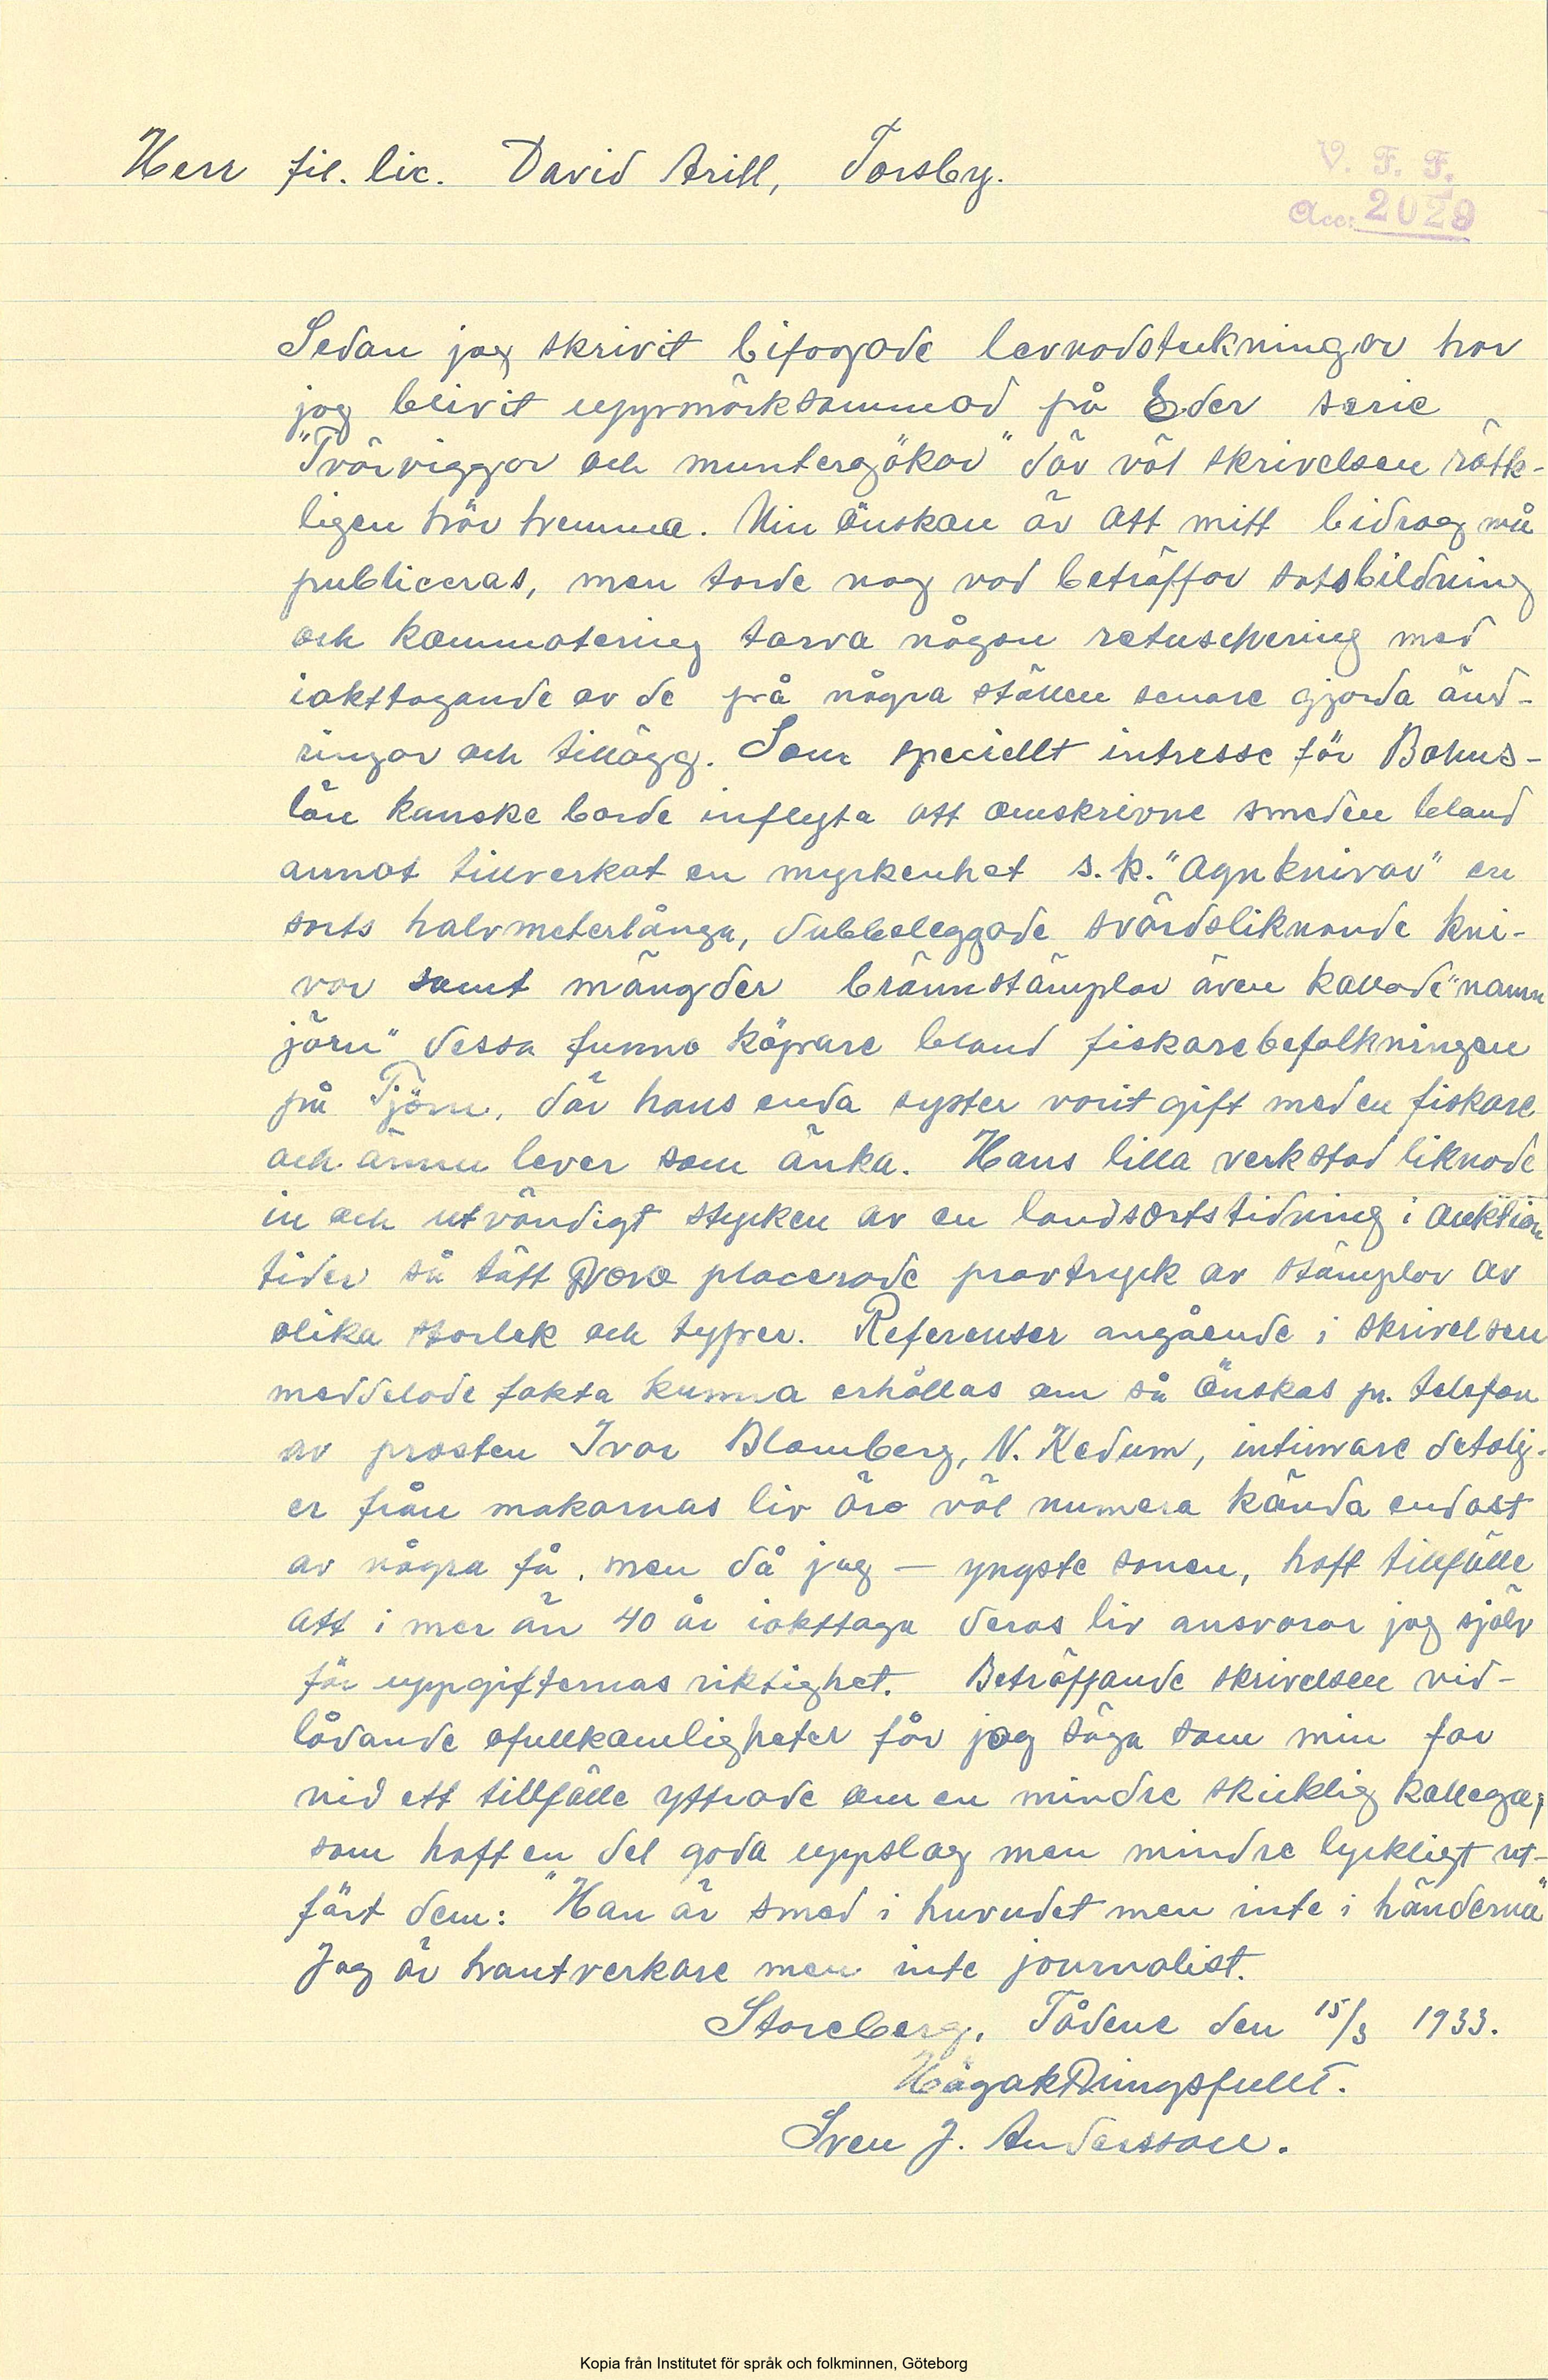 Herr fil. lic. David Arill, Torsby.
V. F. F.
Acc: 2029
Sedan jag skrivit bifogade levnadstekningar har
jag blivit uppmärksammad på Eder serie
"Tvärviggar och muntergökar" där väl skrivelsen rätt-
ligen hör hemma. Min önskan är att mitt bidrag må
publiceras, men torde nog vad beträffar satsbildning
och kommatering tarva någon retuschering med
iakttagande av de på några ställen senare gjorda änd-
ringar och tillägg. Som speciellt intresse för Bohus-
län kanske borde inflyta att omskrivne smeden bland
annat tillverkat en myckenhet s.k. "agnknivar" en
sorts halvmeterlånga, dubbeleggade svärdsliknande kni-
var samt mängder brännstämplar även kallade "namn
järn" dessa funno köpare bland fiskarebefolkningen
på Tjörn, där hans enda syster varit gift med en fiskare
och ännu lever som änka. Hans lilla verkstad liknade
in och utvändigt stycken av en landsortstidning i auktion
tider så tätt voro placerade provtryck av stämplar av
olika storlek och typer. Referenser angående i skrivelsen
meddelade fakta kunna erhållas om så önskas pr. telefon
av prosten Ivar Blomberg, N. Kedum, intimare detalj-
er från makarnas liv äro väl numera kända endast
av några få, men då jag — yngste sonen, haft tillfälle
att i mer än 40 år iakttaga deras liv ansvarar jag själv
för uppgifternas riktighet. Beträffande skrivelsen vid-
lådande ofullkomligheter får jag säga som min far
vid ett tillfälle yttrade om en mindre skicklig kollega,
som haft en del goda uppslag men mindre lyckligt ut-
fört dem: "Han är smed i huvudet men inte i händerna"
Jag är hantverkare men inte journalist.
Storeberg, Tådene den 15/3 1933.
Högaktningsfullt.
Sven J. Andersson.
Kopia från Institutet för språk och folkminnen, Göteborg